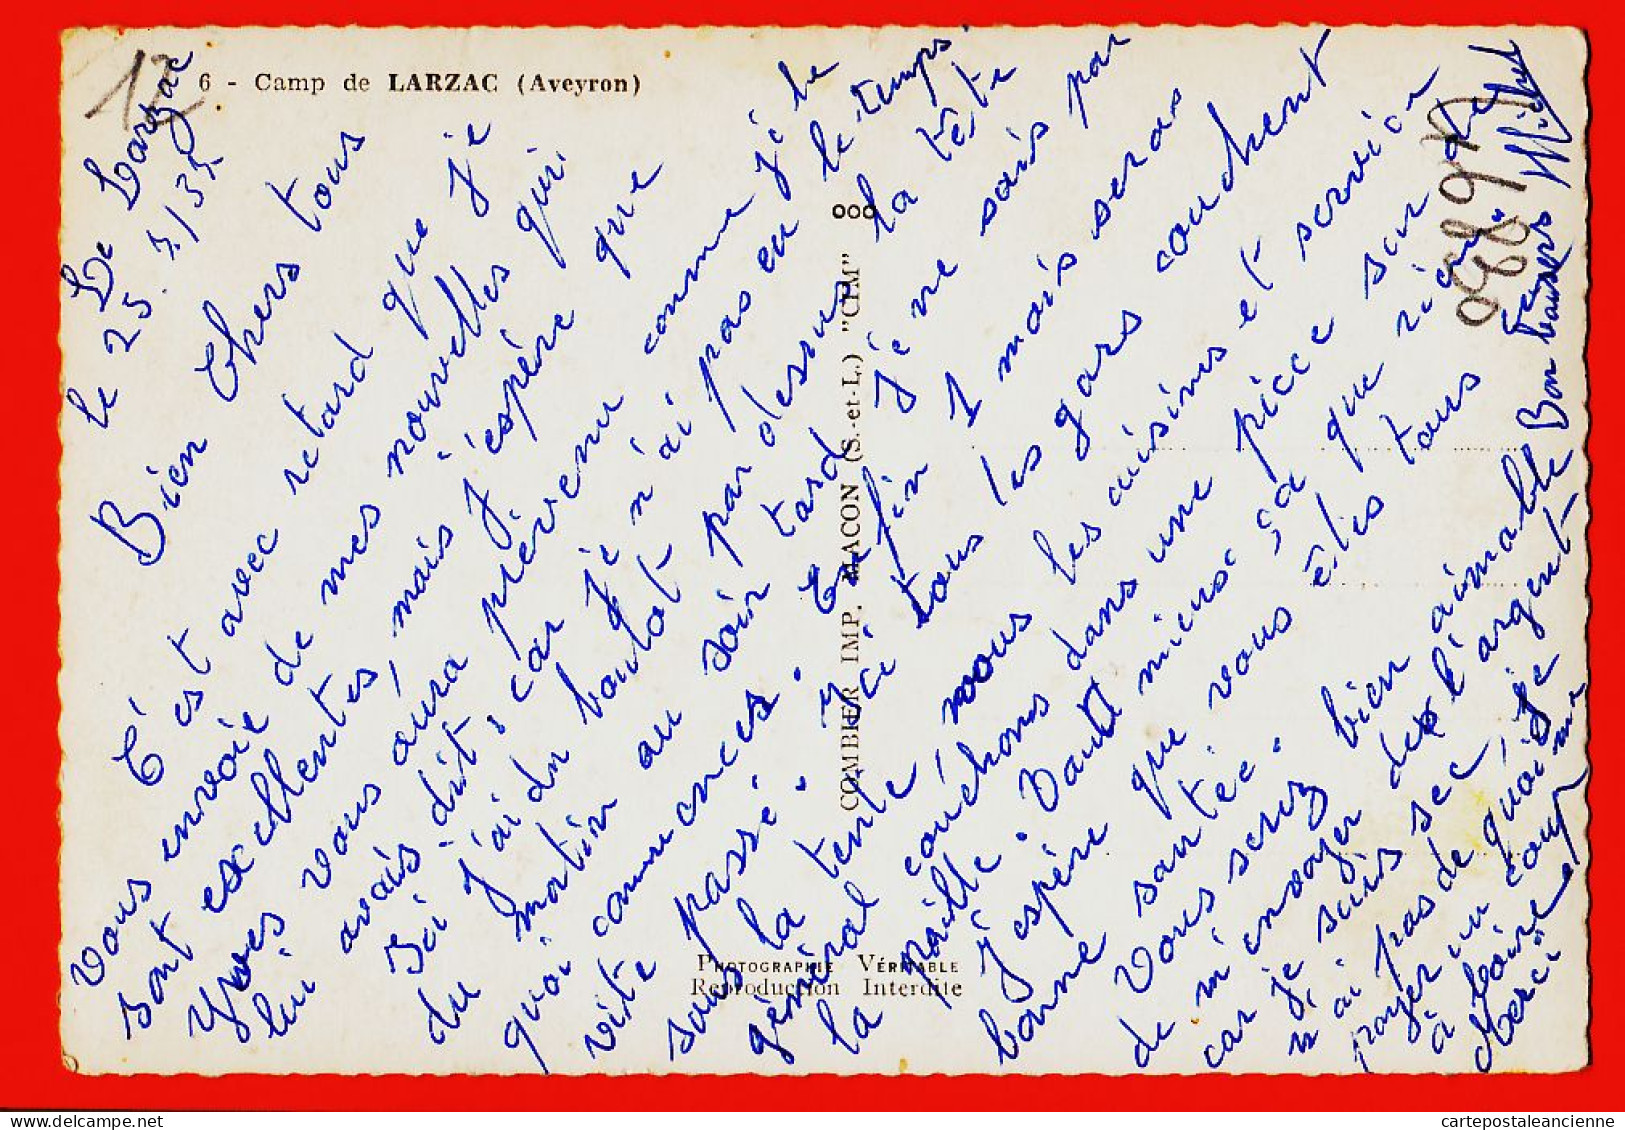 12
6 - Camp de LARZAC (Aveyron)
Le Larzac
le 25.7/35.
Bien Chers tous
C'est avec retard que je
vous envoie de mes nouvelles qui
sont excellentes, mais j'espère que
Yves vous aura prévenu comme je le
lui avais dit, car je n'ai pas eu le temps.
Ici j'ai du boulot par dessus la tête
du matin au soir tard je ne sais par
quoi commencer. Enfin 1 mois seras
vite passé. Ici tous les gars couchent
sous la tente, nous les cuisines et service
général couchons dans une pièce sur de
la paille. Vaut mieux ça que rien.
J'espère que vous êtes tous en
bonne santée.
Vous serez bien aimable
de m'envoyer de l'argent
car je suis sec, je
n'ai pas de quoi me
payer un coup
à boire
Merci
Bon baisers Michel
ooo
COMBIER IMP. MACON (S.-et-L.) "CIM"
PHOTOGRAPHIE VÉRITABLE
Reproduction Interdite
cartepostaleancienne.com